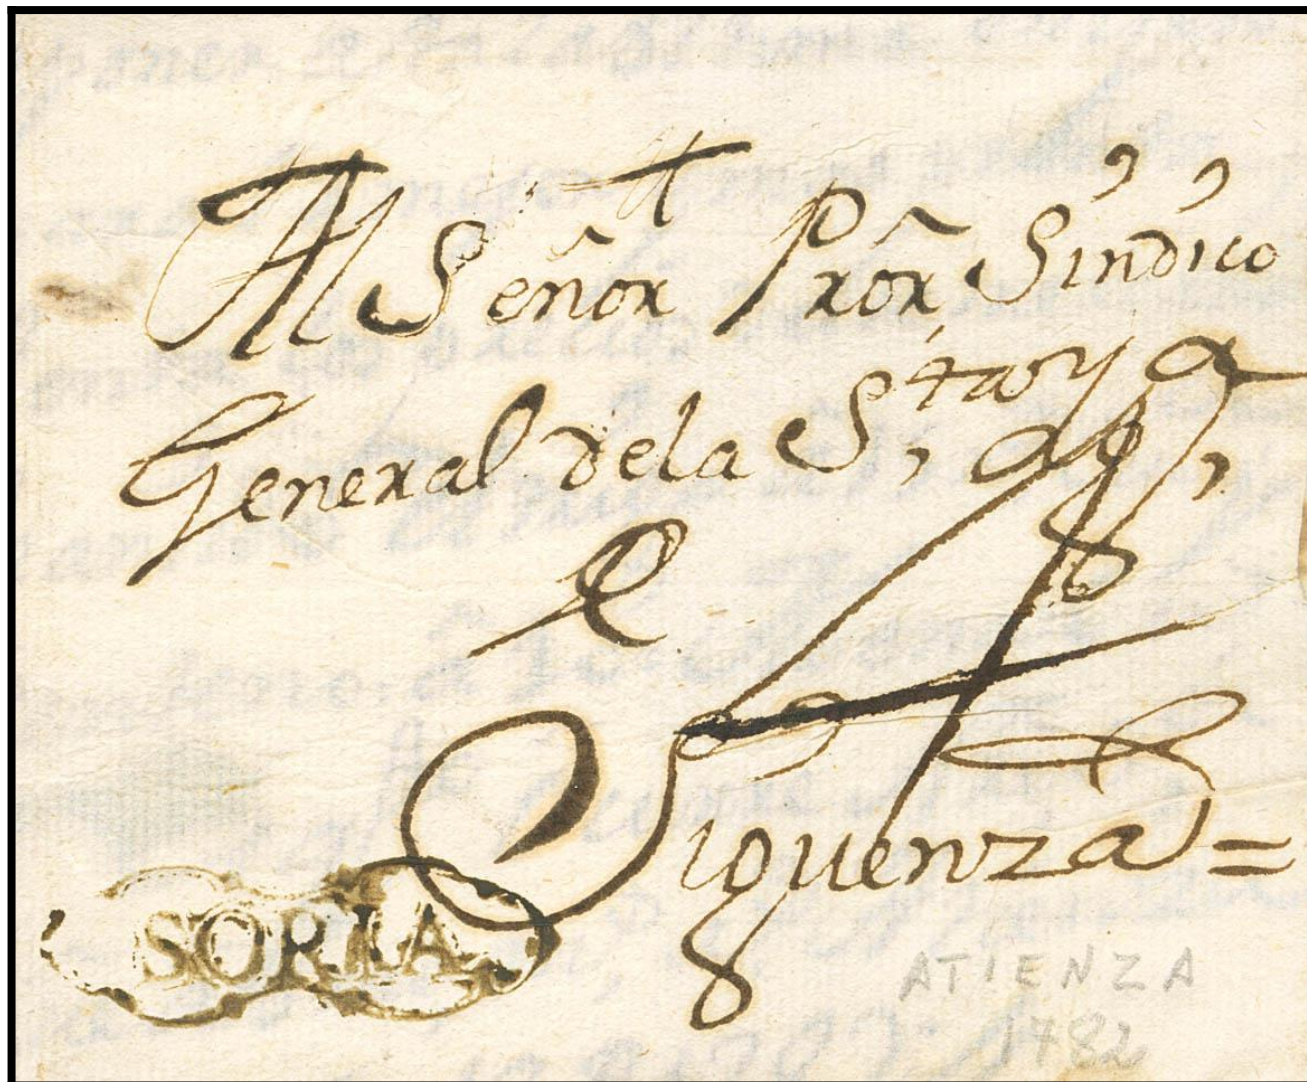 Al Señor Pror̃ Síndico
General dela S.ta y
Siguenza =
SORIA
ATIENZA
1782